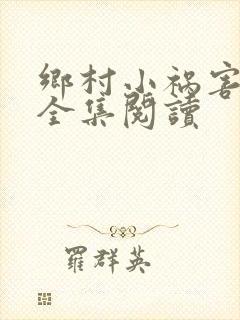 鄉村小禍害
全集閱讀
羅群英